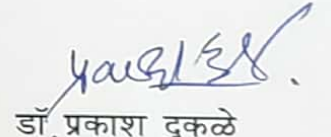 डॉ. प्रकाश दुकळे